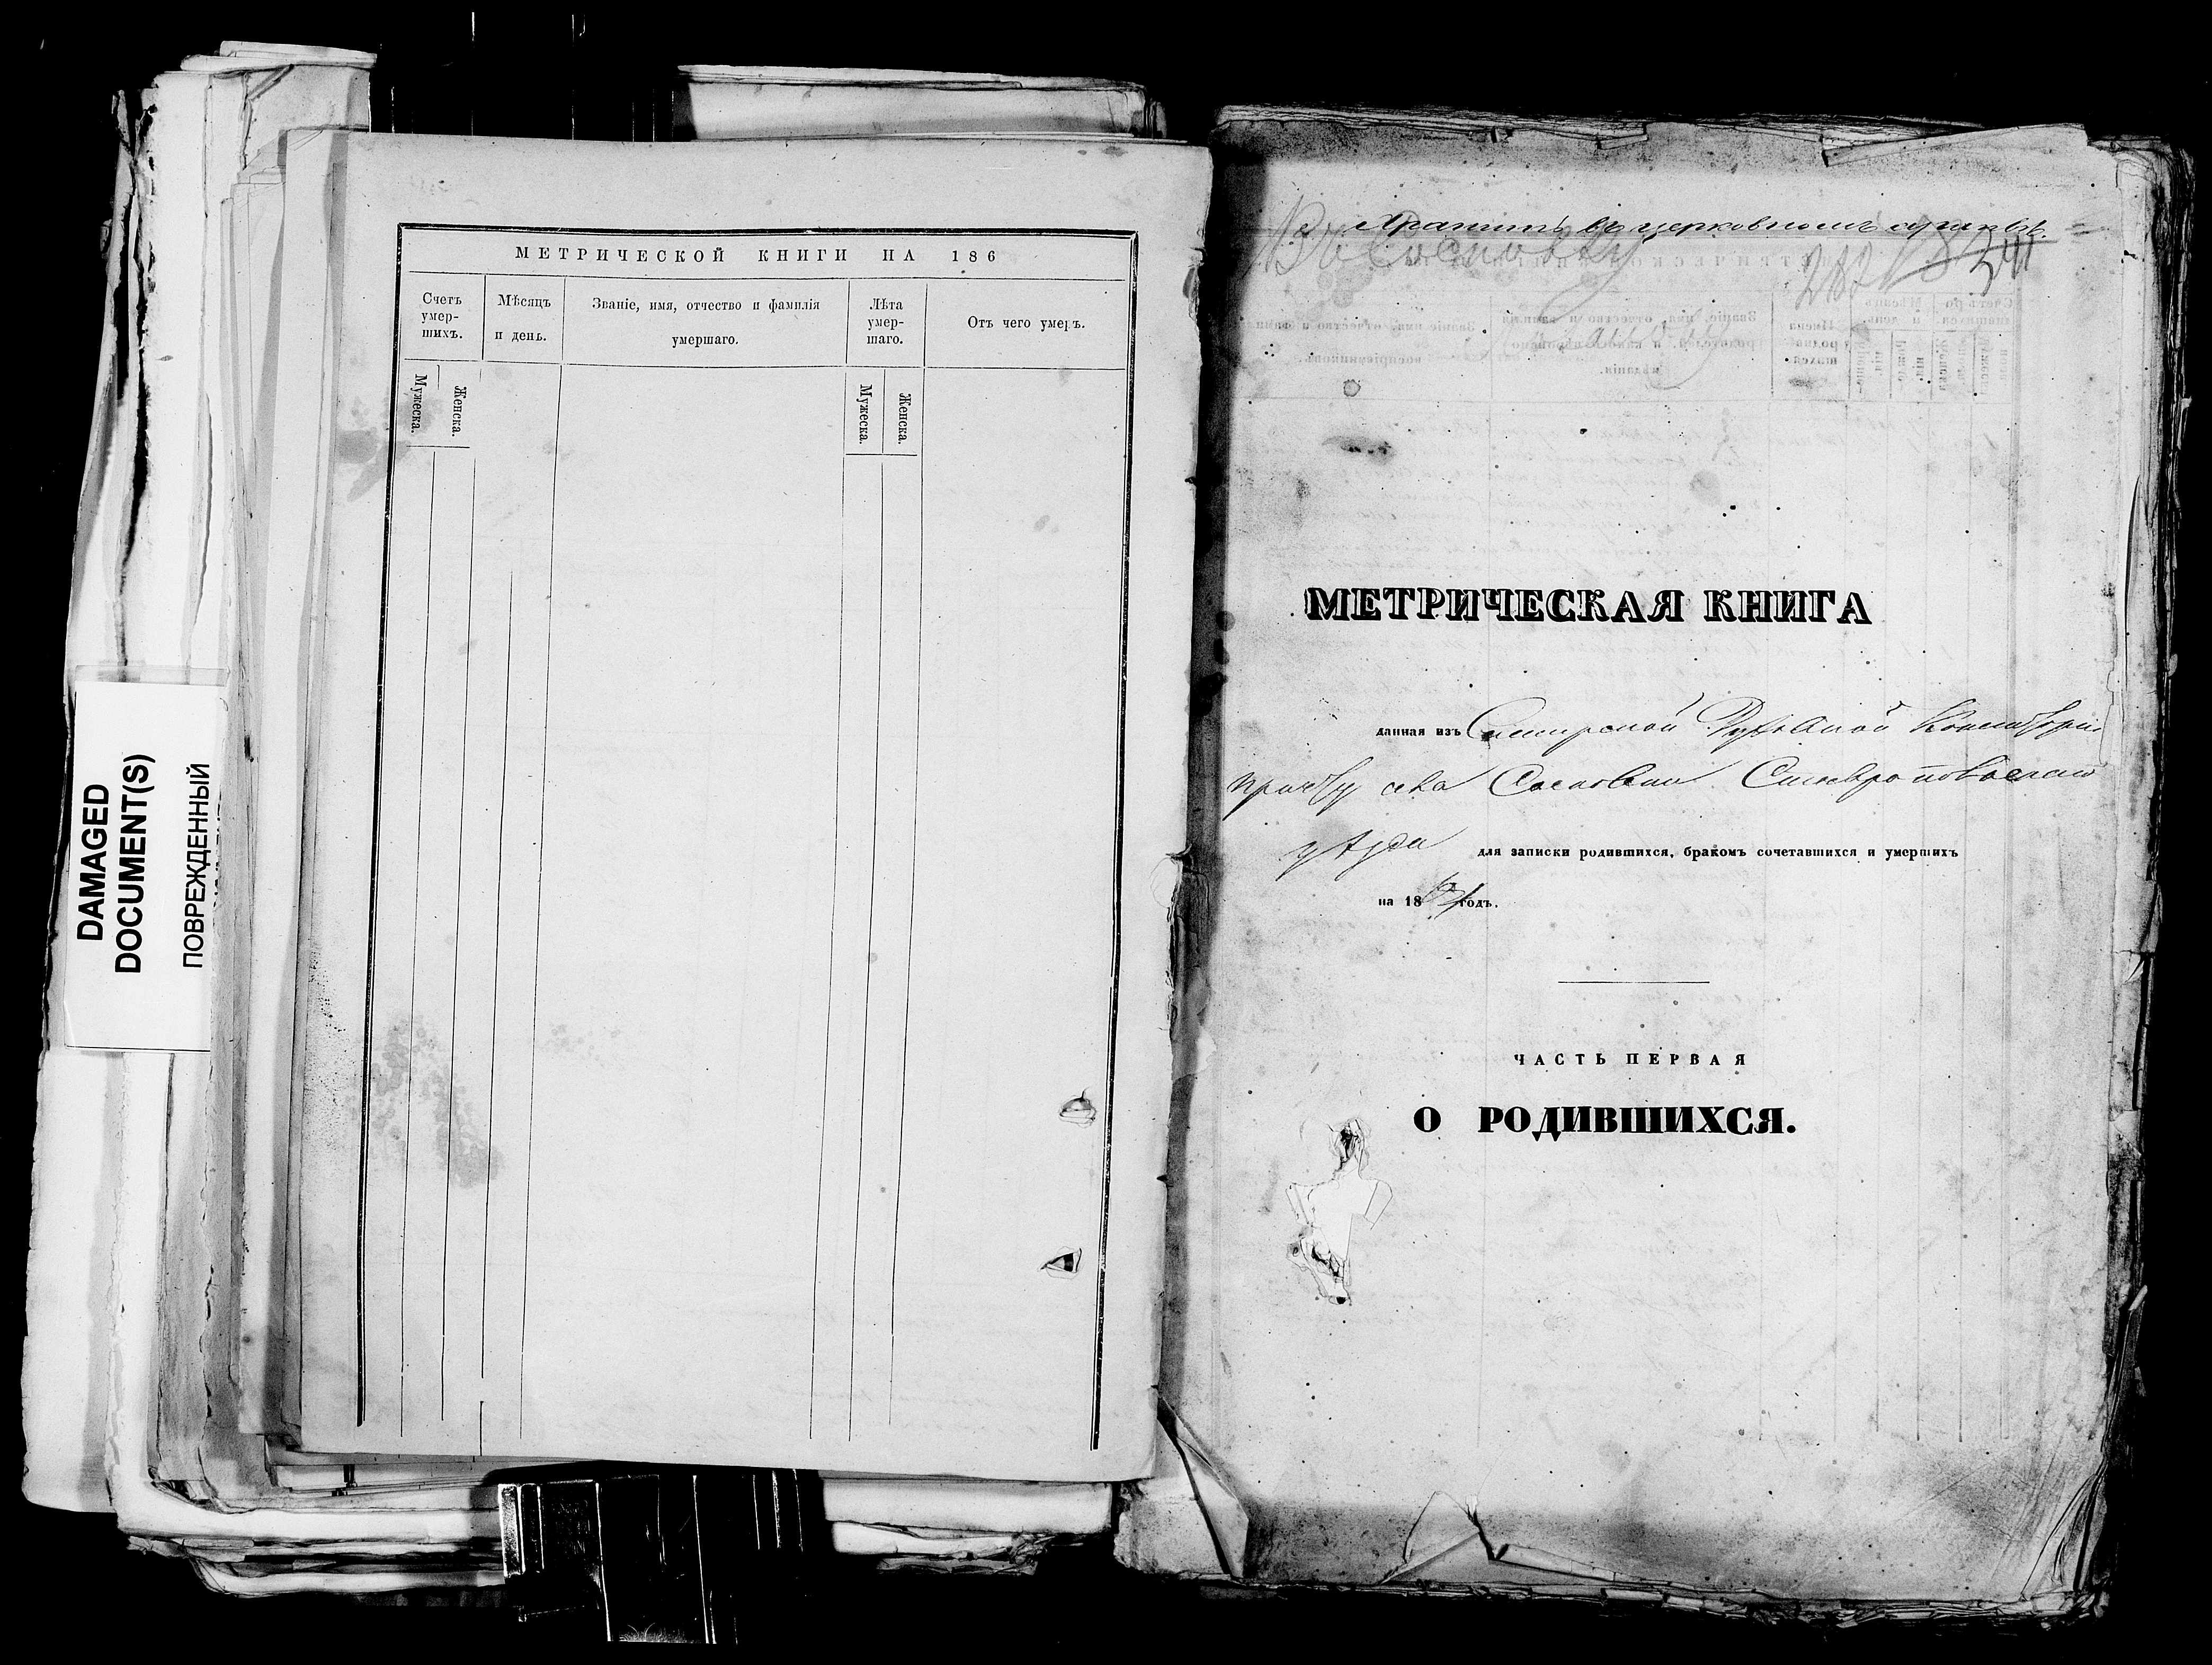 МЕТРИЧЕСКОЙ КНИГИ НА 186
Счетъ умер- шихъ.
Мѣсяцъ и день.
Званіе, имя, отчество и фамилія умершаго.
Лѣта умер- шаго.
Отъ чего умеръ.
Мужеска.
Женска.
Мужеска.
Женска.
DAMAGED
DOCUMENT(S)
ПОВРЕЖДЕННЫЙ
Хранить въ церковномъ архивѣ.
Въ Сосновку
МЕТРИЧЕСКАЯ КНИГА
данная изъ Симбирской Духовной Консисторіи
причту села Сосновки Ставропольскаго
уѣзда для записки родившихся, бракомъ сочетавшихся и умершихъ
на 18 годъ.
ЧАСТЬ ПЕРВАЯ
О РОДИВШИХСЯ.